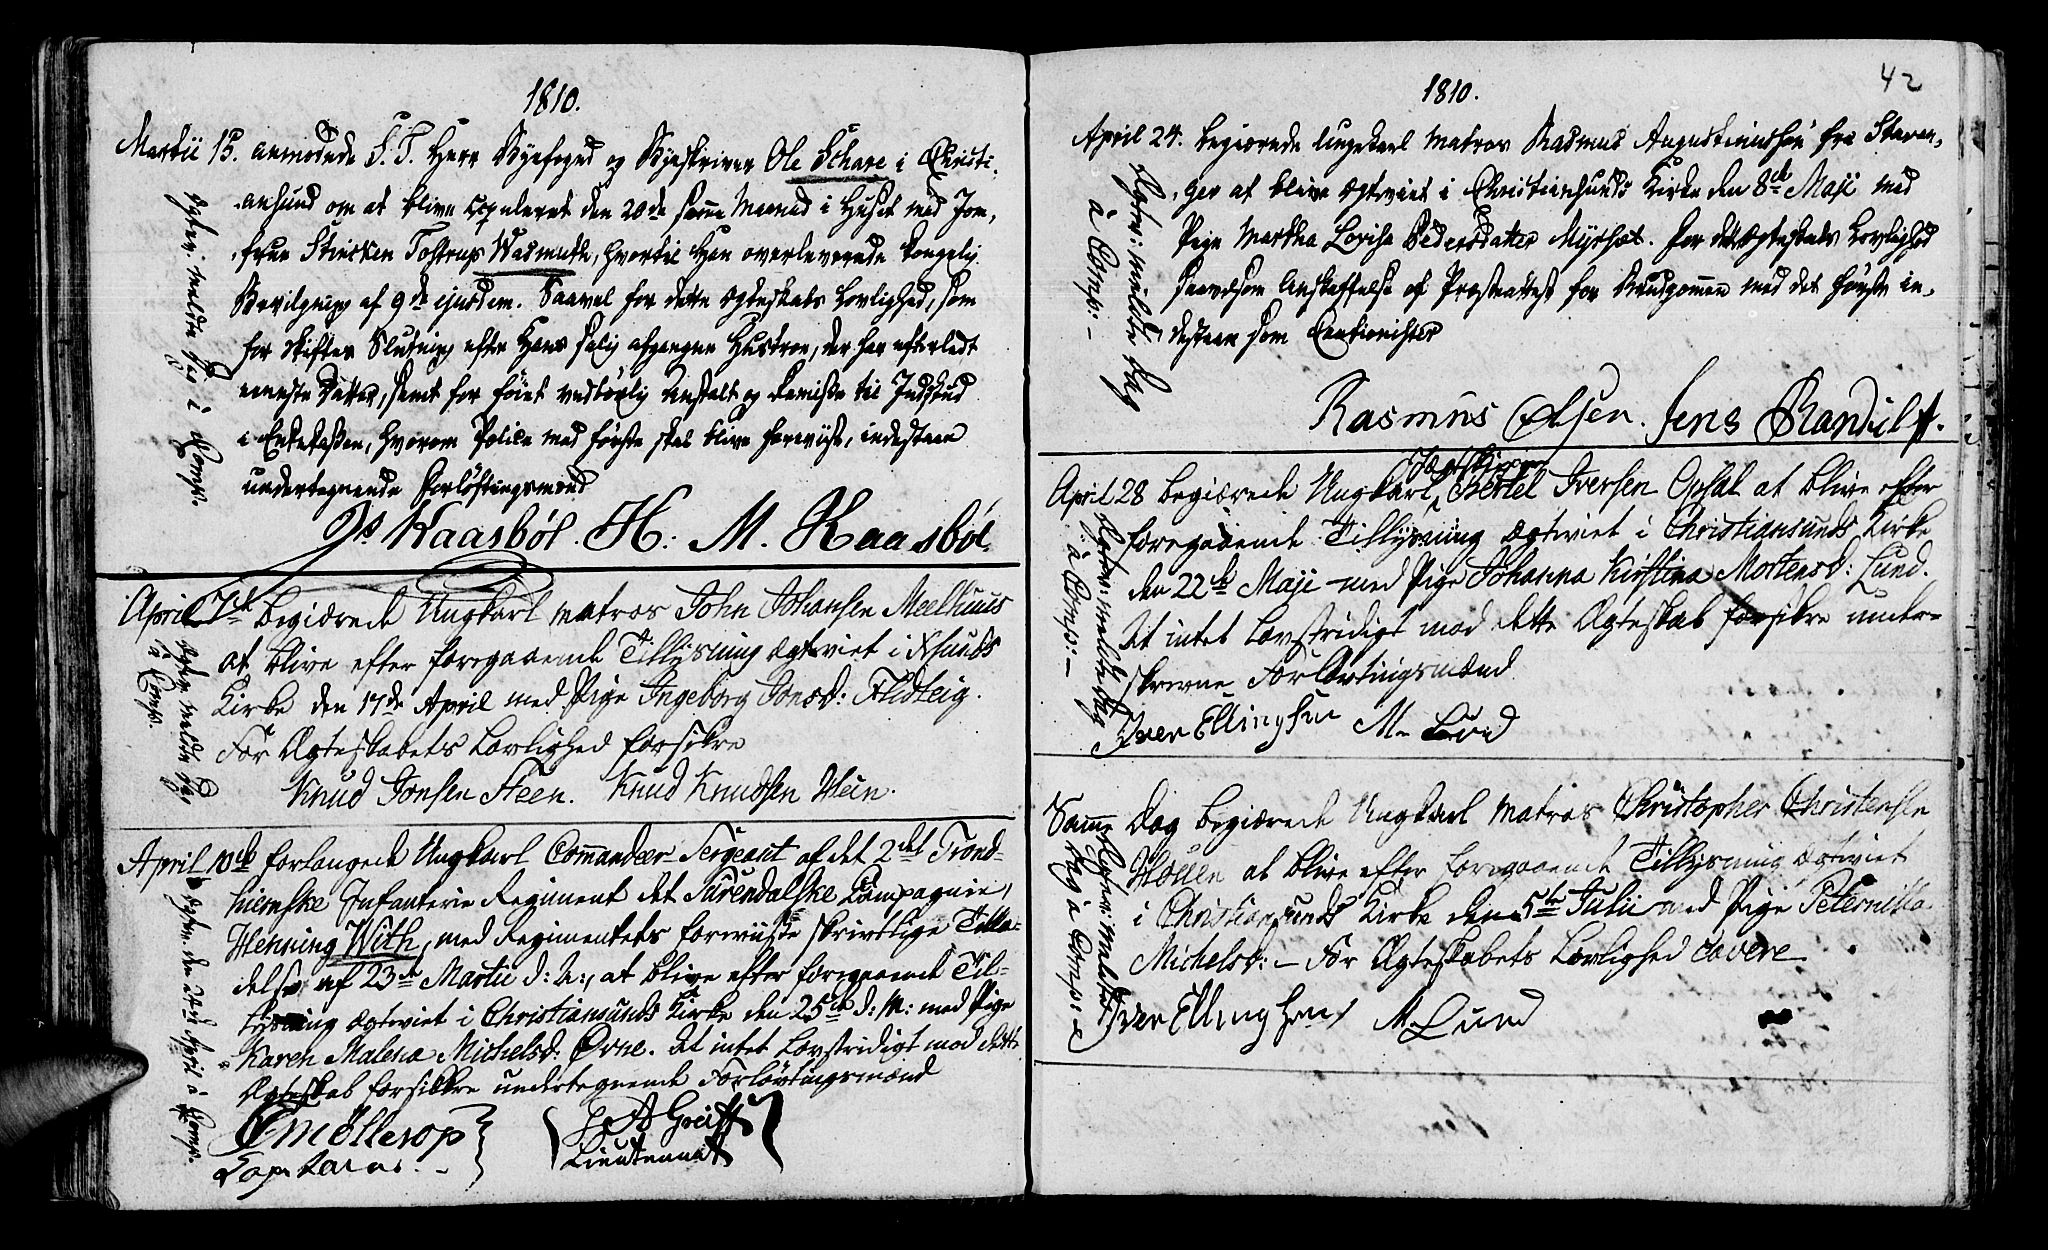 1810.
Martii 15. anmodede S. T. Herr Byefoged og Byeskriver Ole Schare i Christi-
ansund om at blive copuleret den 20de samme Maaned i Huset med Jom-
frue Stincken Tostrup Wasmuth, hvortil Han overleverede kongelig
Bevilgning af 9de ejusdem. Saavel for dette Ægteskabs Lovlighed, som
for Skiftes Slutning efter Hans salig afgangne Hustroe, der har efterladt
eeneste Datter, samt for føiet vedbørlig Anstalt og Remisse til Indskud
i Enkekassen, hvorom Police med første skal blive foreviist, indestaae
undertegnende Forlovtingsmænd
Js Kaasbøl. H: M. Kaasbøl.
Egter: meldte sig i Comp:
April 7de begiærede Ungkarl matros John Johansen Meelhuus
at blive efter foregaaende Tillysning ægtviet i Xsunds
Kirke den 17de April med Pige Ingeborg Jonsd:
For Ægteskabets Lovlighed forsikre
Knud Jonsen Steen. Knud Knudsen Hein.
Egter: meldte sig
à Comp:
April 10de forlangede Ungkarl Commandeer Sergeant af det 2det Trond-
hiemske Infanterie Regiment det Surendalske Compagnie,
Henning With, med Regimentets forviiste skrivtlige Tilla-
delse af 23de Martii d: A:, at blive efter foregaaende Til-
lysning ægtviet i Christiansunds Kirke den 25de d: M: med Pige
Karen Malena Michelsd: Ørne. At intet Lovstridigt mod dette
Ægteskab forsikkre undertegnende Forlovtingsmænd
Møllerop
Greiff
Lieutenant
Egter: den 24de April à Comp:
42
1810.
April 24. begiærede Ungekarl Matros Rasmus Augustinussen fra Stavan-
ger at blive ægtviet i Christiansunds Kirke den 8de Maji med
Pige Martha Lovisa Pedersdatter Myrset. For dette Ægteskabs Lovlighed
saavelsom Anskaffelse af Præsteattest for Brudgommen med det første in-
destaae som Cautionister
Rasmus Olsen. Jens Randul
Egter: meldte sig
à Comp: -
April 28 begiærede Ungkarl Bertel Iversen Opsal at blive efter
foregaaende Tillysning ægtviet i Christiansunds Kirke
den 22de Maji med Pige Johanna Kirstina Mortensd: Lund.
At intet Lovstridigt mod dette Ægteskab forsikre under-
skrevne Forlovtingsmænd
Iver Ellingsen M. Lund
Egter: meldte sig
à Comp: -
Samme Dag begiærede Ungkarl matros Christopher Christensen
at blive efter foregaaende Tillysning ægtviet
i Christiansunds Kirke den 5te Julii med Pige Peternilla
Michelsd: - For Ægteskabets Lovlighed cavere
Iver Ellingsen M Lund
Egter: meldte
sig à Comp: